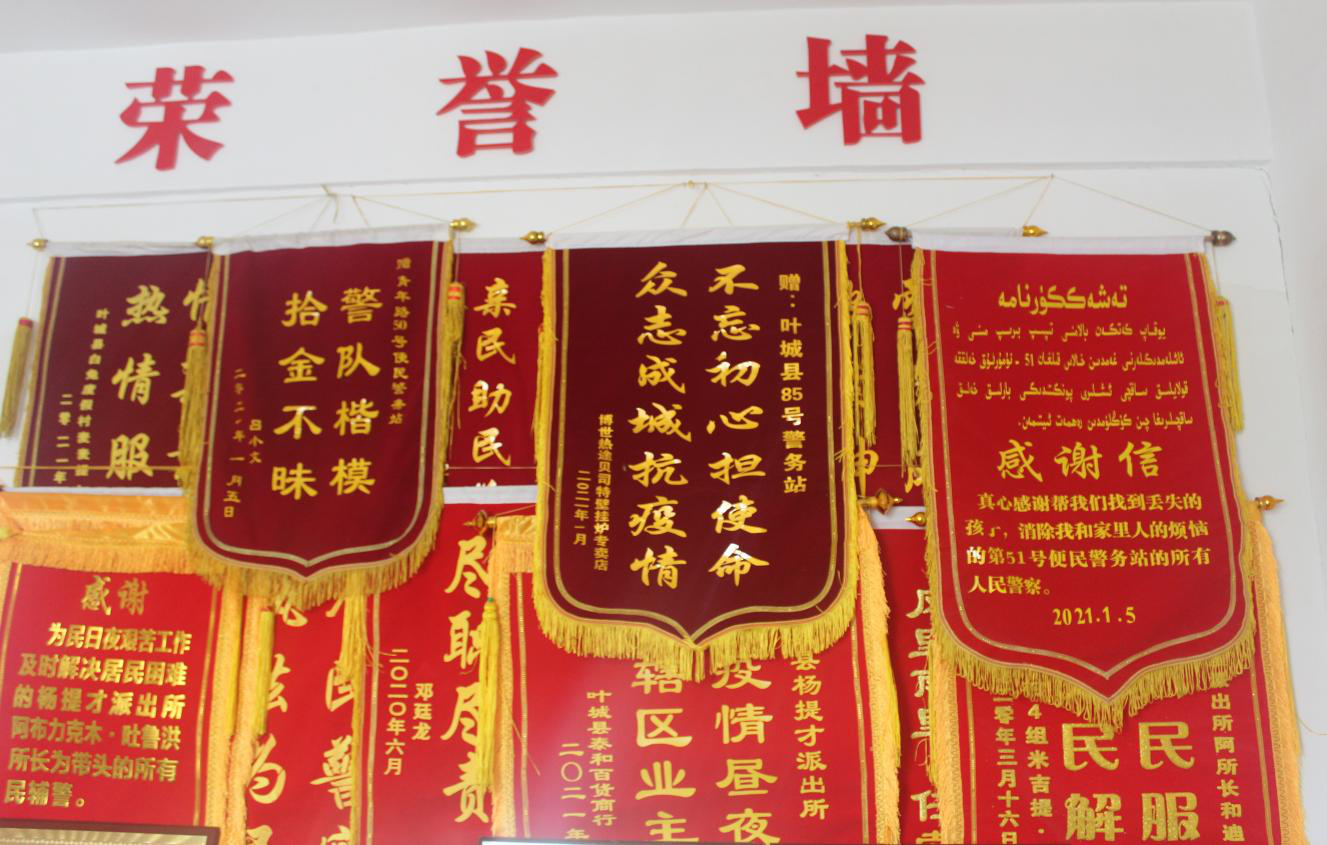 荣誉墙
热情服
叶城县白
二零二一年
赠 青年路50号便民警务站
警队楷模
拾金不昧
吕小文
二零二一年一月五日
亲民助民
赠：叶城县85号警务站
不忘初心担使命
众志成城抗疫情
博世热途贝司特壁挂炉专卖店
二〇二一年一月
تەشەككۈرنامە
يوقاپ كەتكەن بالانى تېپىپ بېرىپ مېنى ۋە
ئائىلەمدىكىلەرنى غەمدىن خالاس قىلغان 51 - نومۇرلۇق خەلققە
قولايلىق ساقچى ئىشلىرى پونكىتىدىكى بارلىق خەلق
ساقچىلىرىغا چىن كۆڭلۈمدىن رەھمەت ئېيتىمەن.
感谢信
真心感谢帮我们找到丢失的
孩子，消除我和家里人的烦恼
的第51号便民警务站的所有
人民警察。
2021.1.5
感谢
为民日夜艰苦工作
及时解决居民困难
的杨提才派出所
阿布力克木·吐鲁洪
所长为带头的所有
民辅警。
民警
为
尽职尽责
邓廷龙
二〇二〇年六月
县杨提才派出所
疫情昼夜
辖区业主
叶城县泰和百货商行
二〇二一年
风里雨里
出所阿所长和迪
民服
民解
4组米吉提·
零年三月十六日